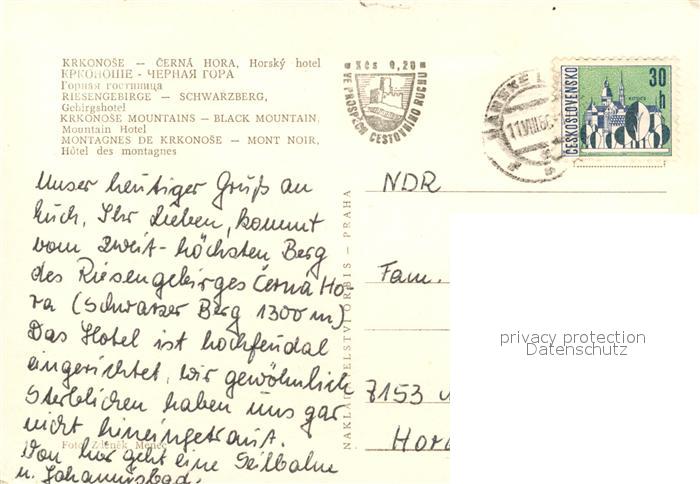 KRKONOŠE — ČERNÁ HORA, Horský hotel
КРКОНОШЕ - ЧЕРНАЯ ГОРА
Горная гостиница
RIESENGEBIRGE — SCHWARZBERG,
Gebirgshotel
KRKONOŠE MOUNTAINS — BLACK MOUNTAIN,
Mountain Hotel
MONTAGNES DE KRKONOŠE — MONT NOIR,
Hôtel des montagnes
Kčs 0,20
VE PROSPĚCH CESTOVNÍHO RUCHU
ČESKOSLOVENSKO
30 h
Unser heutiger Gruß an
Euch, Ihr Lieben, kommt
vom zweit-höchsten Berg
des Riesengebirges Černá Ho-
ra (Schwarzer Berg 1300 m)
Das Hotel ist hochfeudal
eingerichtet, wir gewöhnlich
Sterblichen haben uns gar
nicht hineingetraut.
Von hier geht eine Seilbahn
n. Johannisbad.
Foto Zdeněk Menec
NAKLADATELSTVÍ ORBIS — PRAHA
NDR
Fam.
7153
Hor
privacy protection
Datenschutz